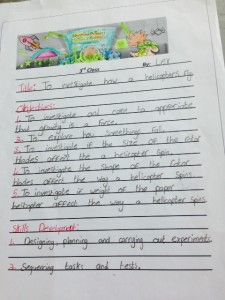 3rd Class By: Lexi
Title: To investigate how a helicopters fly
Objectives:
1. To investigate and come to appreciate
that gravity is a force.
2. To explore how something fall.
3. To investigate if the size of the rotor
blades affect the a helicopter spin.
4. To investigate the shape of the rotor
blades affect the way a helicopter spins.
5. To investigate if weight of the paper
helicopter affect the way a helicopter spins.
Skills Development:
1. Designing, planning and carrying out experiments.
2. Sequencing tasks and tests.